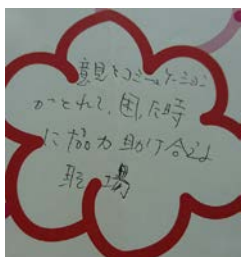 意見とコミュニケーション
がとれて、困った時
に協力助け合える
職場